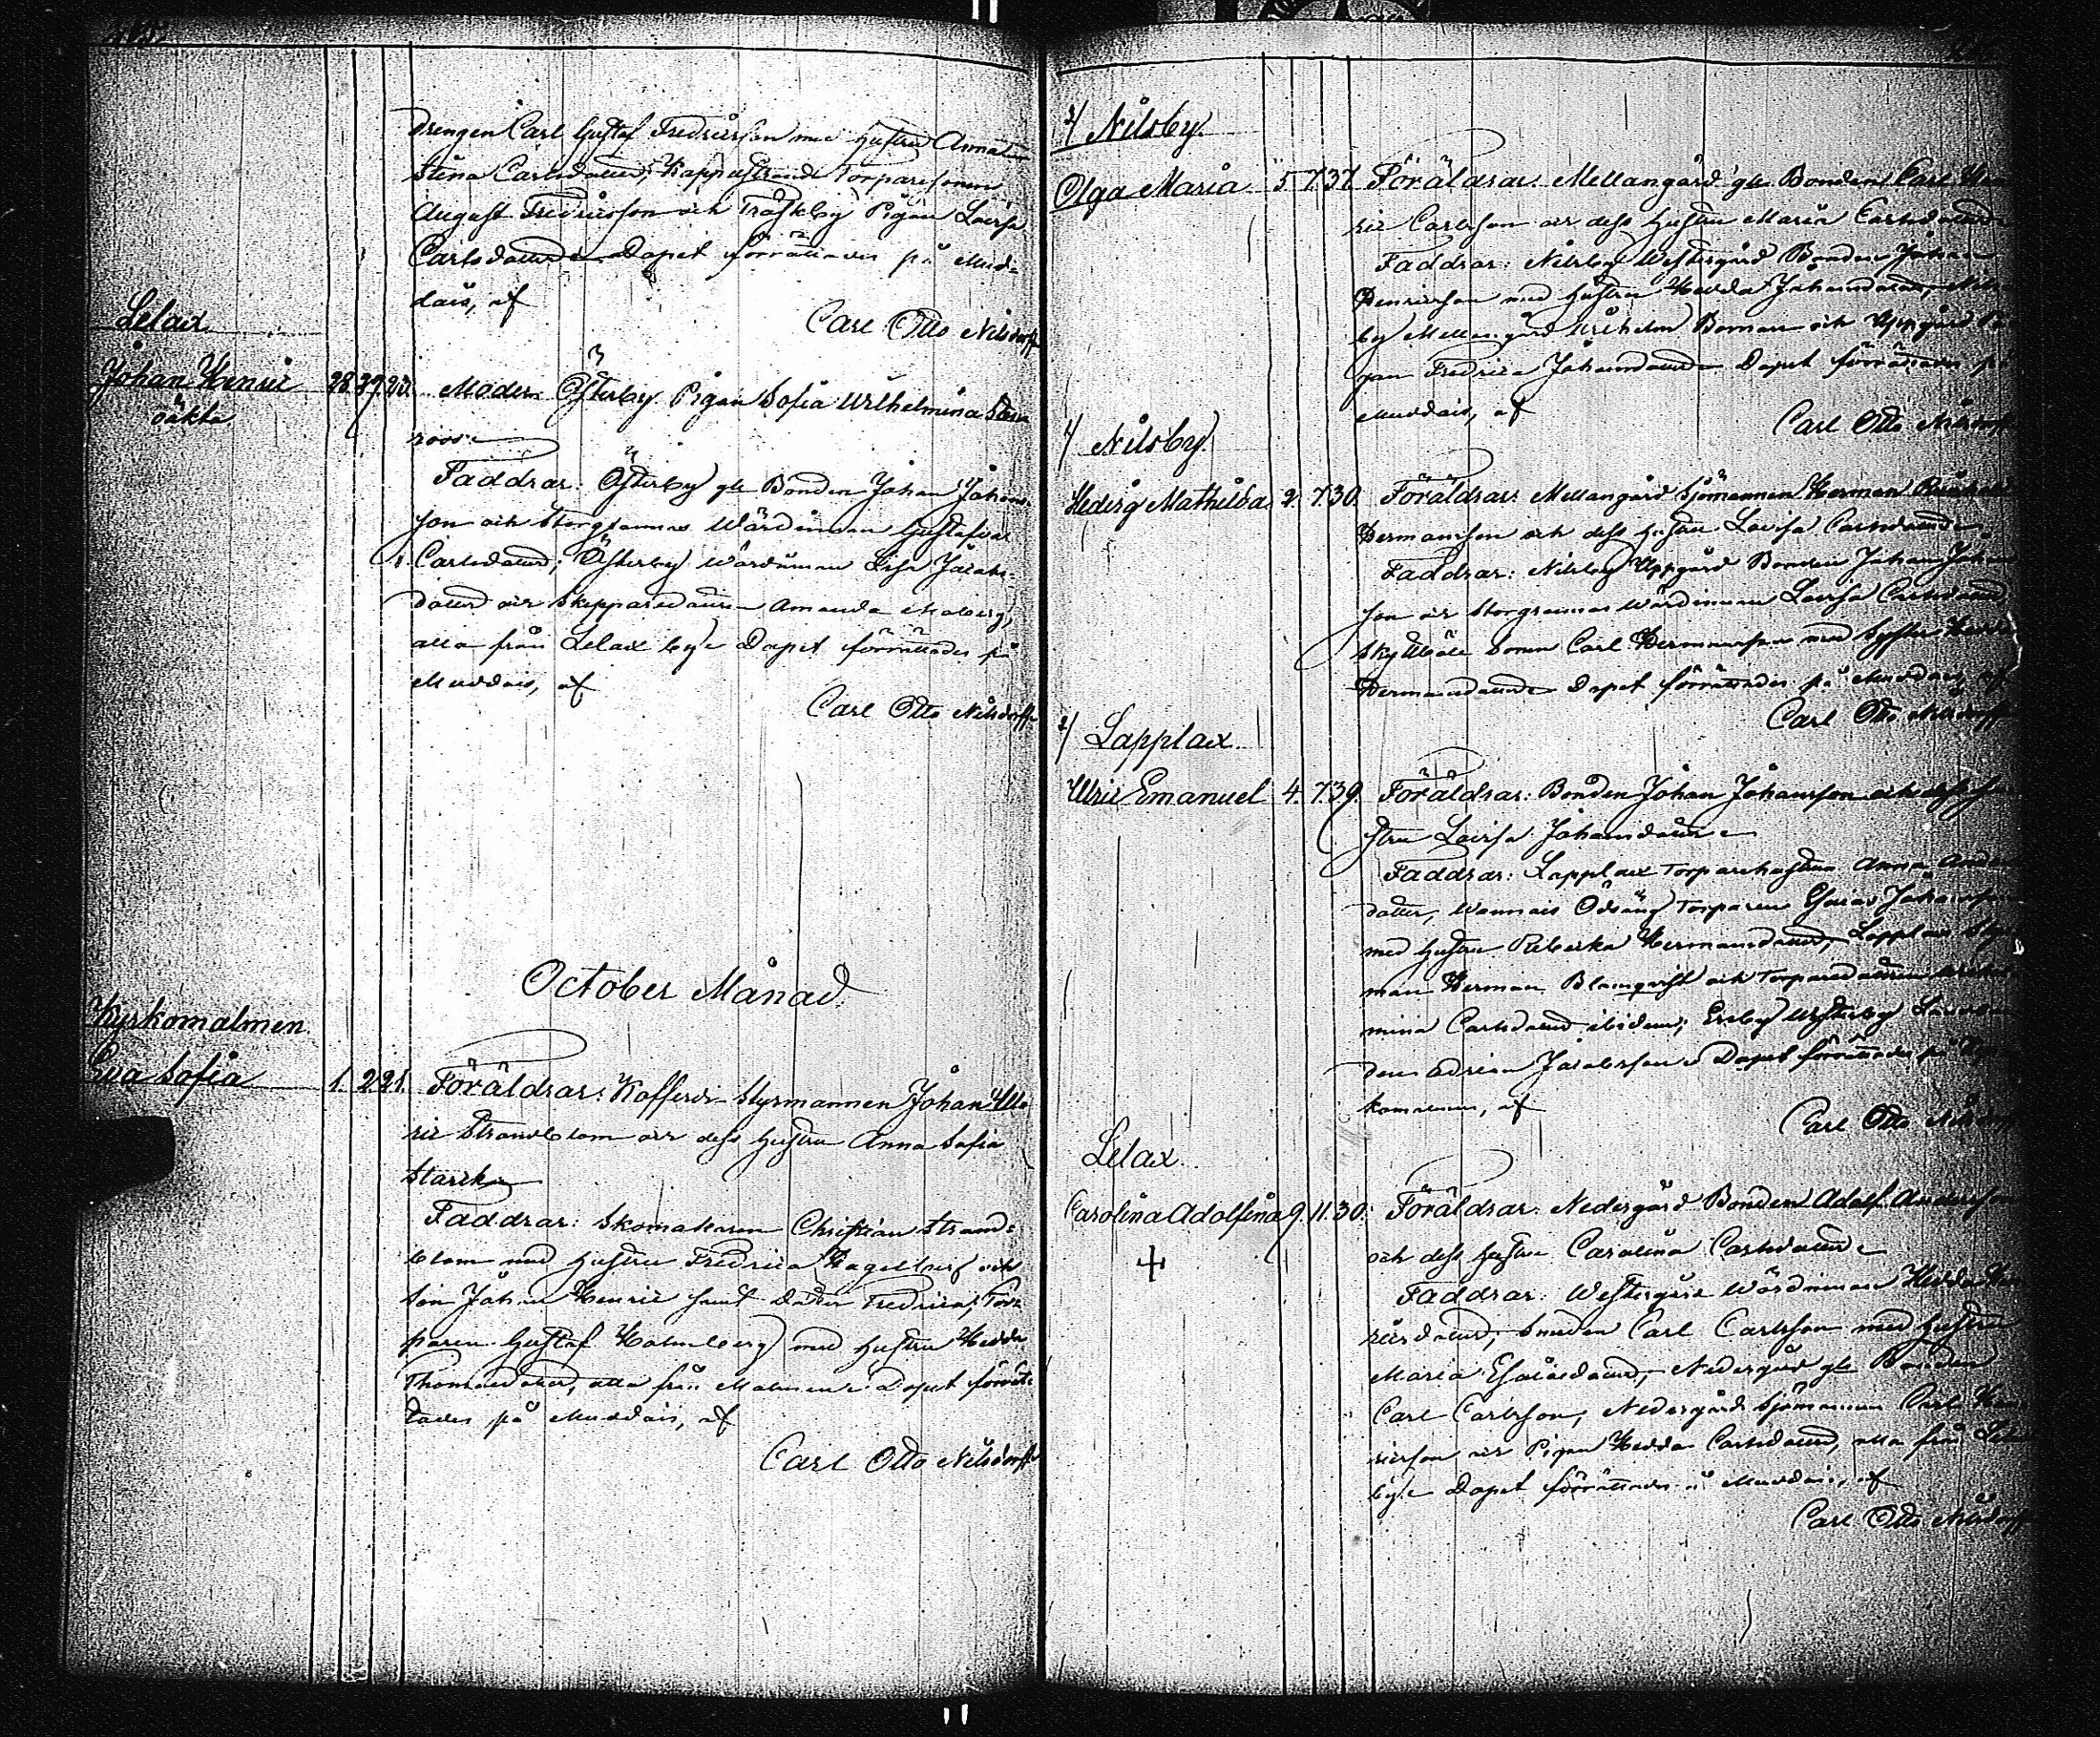 Drengen Carl Gustaf Fredricsson med hustru Anna
Stina Carlsdotter, Kappelstrand Torparesonen
August Fredricsson och Träskby Pigan Lovisa
Carlsdotter Dopet förrättades på Mud-
dais, af
Carl Otto Nilsdorff
Lelax
Johan Henric 28. 29. 20. Moder: Österby Pigan Sofia Wilhelmina
oäkta
roos
Faddrar: Österby gle Bonden Johan Johans-
son och Storgrannas Wärdinnan Gustafva
Carlsdotter; Österby Wärdinnan Lisa Jacobs-
dotter och Skepparedottren Amanda Moberg,
alla från Lelax by. Dopet förrättades på
Muddais, af
Carl Otto Nilsdorff
October Månad
Kyrkomalmen
Eva Sofia 1. 2 21. Föräldrar: Kofferdi-Styrmannen Johan Ul-
ric Strandblom och dess hustru Anna Sofia
Starck
Faddrar: Skomakaren Christian Strand-
blom med hustru Fredrica Hagelberg och
Son Johan Henric samt Dotter Fredrica; Tor-
paren Gustaf Holmberg med hustru Hedda
Thomasdotter, alla från Malmen. Dopet förrät-
tades på Muddais, af
Carl Otto Nilsdorff
2/ Nilsby
Olga Maria 5 7. 37. Föräldrar: Mellangård gle Bonden Carl
ric Carlsson och dess hustru Maria Carlsdotter
Faddrar: Nilsby Westergård Bonden Johan
Henricsson med hustru Hedda Johansdotter, Nils-
by Mellangård Wilhelm Boman och Uppgård Pi-
gan Fredrica Johansdotter Dopet förrättades på
Muddais, af
Carl Otto Nilsdorff
1/ Nilsby
Hedvig Mathilda 2. 7. 30. Föräldrar: Mellangård Sjömannen Herman
Hermansson och dess hustru Lovisa Carlsdotter
Faddrar: Nilsby Uppgård Bonden Johan Johans-
son och Storgrannas Wärdinnan Lovisa Carlsdotter
Sonen Carl Hermansson med Syster Hedda
Hermansdotter Dopet förrättades på Muddais, af
Carl Otto Nilsdorff
2/ Lapplax
Ulric Emanuel 4. 7. 39. Föräldrar: Bonden Johan Johansson och dess hu-
stru Lovisa Johansdotter
Faddrar: Lapplax Torparehustrun Anna Anders-
dotter, Wannais Ödsäng Torparen Esaias Johansson
med hustru Rebecka Hermansdotter, Lapplax
man Herman Blomqvist och Torparedottren Wilhel-
mina Carlsdotter ibidem; Ersby Westerby
den Adrian Jacobsson Dopet förrättades på Kyr-
komalmen, af
Carl Otto Nilsdorff
Lelax
Carolina Adolfina 9. 11. 30. Föräldrar: Nedergård Bonden Adolf Andersson
och dess hustru Carolina Carlsdotter
Faddrar: Westergård Wärdinnan Hedda Hen-
ricsdotter, Smeden Carl Carlsson med hustru
Maria Esaiædotter, Nedergård gle Bonden
Carl Carlsson, Nedergård Sjömannen Carl Hen-
ricsson och Pigan Hedda Carlsdotter, alla från Lelax
by. Dopet förrättades å Muddais, af
Carl Otto Nilsdorff